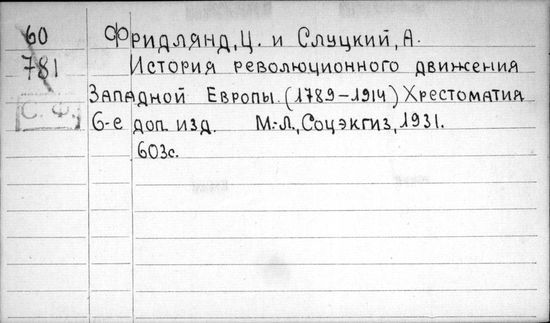 60 Фридлянд, Ц. и Слуцкий, А.
781 История революционного движения
Западной Европы (1789-1914) Хрестоматия
С. Ф. 6-е доп. изд. М.-Л., Соцэкгиз, 1931.
603с.